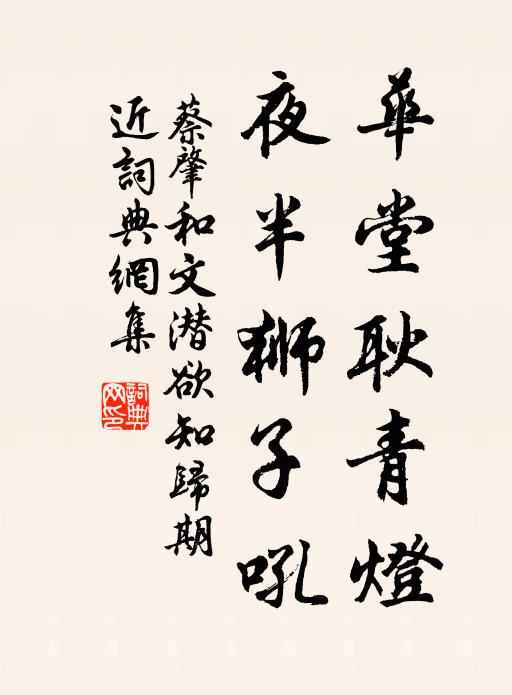 華堂耿青燈
夜半獅子吼
蔡肇和文潛欲知歸期
近詞典網集
詞典
网印